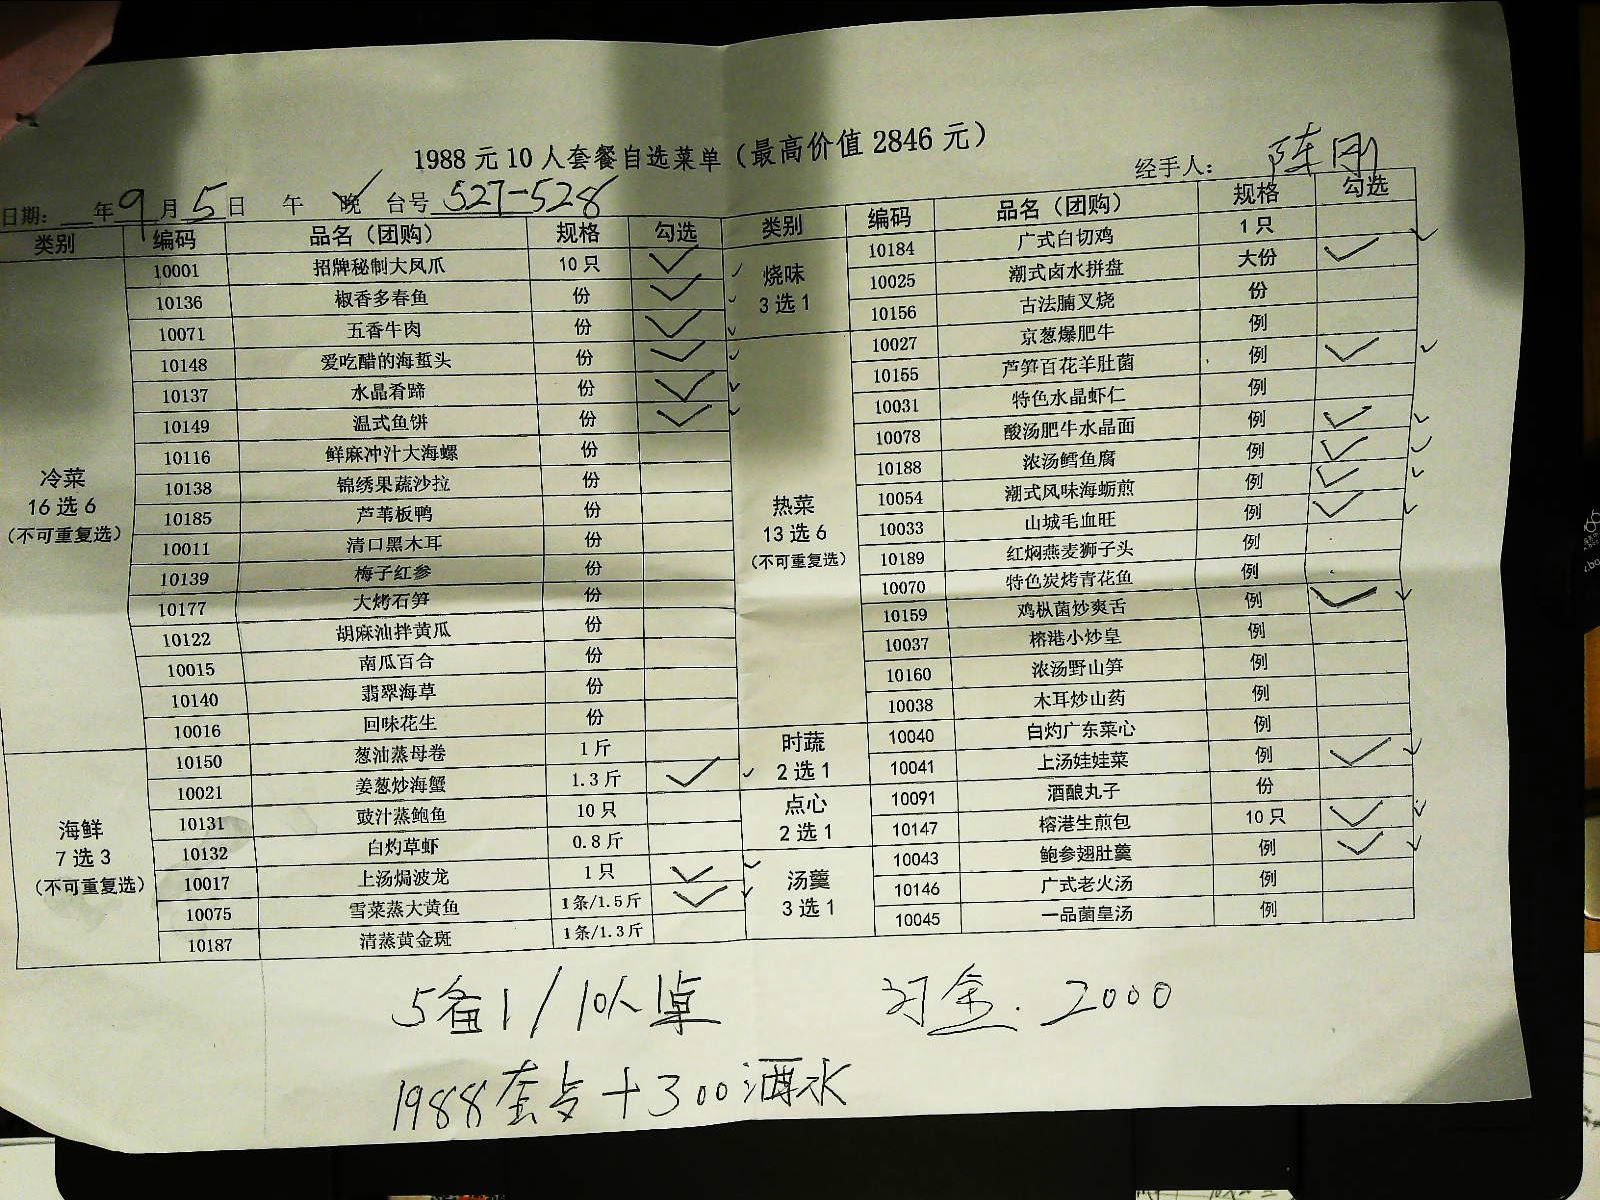 1988 元 10 人套餐自选菜单（最高价值 2846 元）
经手人： 陈刚
日期： 年 9 月 5 日 午 晚 台号 527-528
类别 编码 品名（团购） 规格 勾选
冷菜
16 选 6
（不可重复选）
10001 招牌秘制大凤爪 10 只 ✓
10136 椒香多春鱼 份 ✓
10071 五香牛肉 份 ✓
10148 爱吃醋的海蜇头 份 ✓
10137 水晶肴蹄 份 ✓
10149 温式鱼饼 份 ✓
10116 鲜麻冲汁大海螺 份
10138 锦绣果蔬沙拉 份
10185 芦苇板鸭 份
10011 清口黑木耳 份
10139 梅子红参 份
10177 大烤石笋 份
10122 胡麻油拌黄瓜 份
10015 南瓜百合 份
10140 翡翠海草 份
10016 回味花生 份
海鲜
7 选 3
（不可重复选）
10150 葱油蒸母卷 1 斤
10021 姜葱炒海蟹 1.3 斤 ✓
10131 豉汁蒸鲍鱼 10 只
10132 白灼草虾 0.8 斤
10017 上汤焗波龙 1 只 ✓
10075 雪菜蒸大黄鱼 1条/1.5 斤 ✓
10187 清蒸黄金斑 1条/1.3 斤
类别 编码 品名（团购） 规格 勾选
烧味
3 选 1
10184 广式白切鸡 1 只
10025 潮式卤水拼盘 大份 ✓
10156 古法腩叉烧 份
热菜
13 选 6
（不可重复选）
10027 京葱爆肥牛 例
10155 芦笋百花羊肚菌 例 ✓
10031 特色水晶虾仁 例
10078 酸汤肥牛水晶面 例 ✓
10188 浓汤鳕鱼腐 例 ✓
10054 潮式风味海蛎煎 例 ✓
10033 山城毛血旺 例 ✓
10189 红焖燕麦狮子头 例
10070 特色炭烤青花鱼 例
10159 鸡枞菌炒爽舌 例 ✓
10037 榕港小炒皇 例
10160 浓汤野山笋 例
10038 木耳炒山药 例
时蔬
2 选 1
10040 白灼广东菜心 例
10041 上汤娃娃菜 例 ✓
点心
2 选 1
10091 酒酿丸子 份
10147 榕港生煎包 10 只 ✓
汤羹
3 选 1
10043 鲍参翅肚羹 例 ✓
10146 广式老火汤 例
10045 一品菌皇汤 例
5备1/10人桌 订金. 2000
1988套 + 300酒水